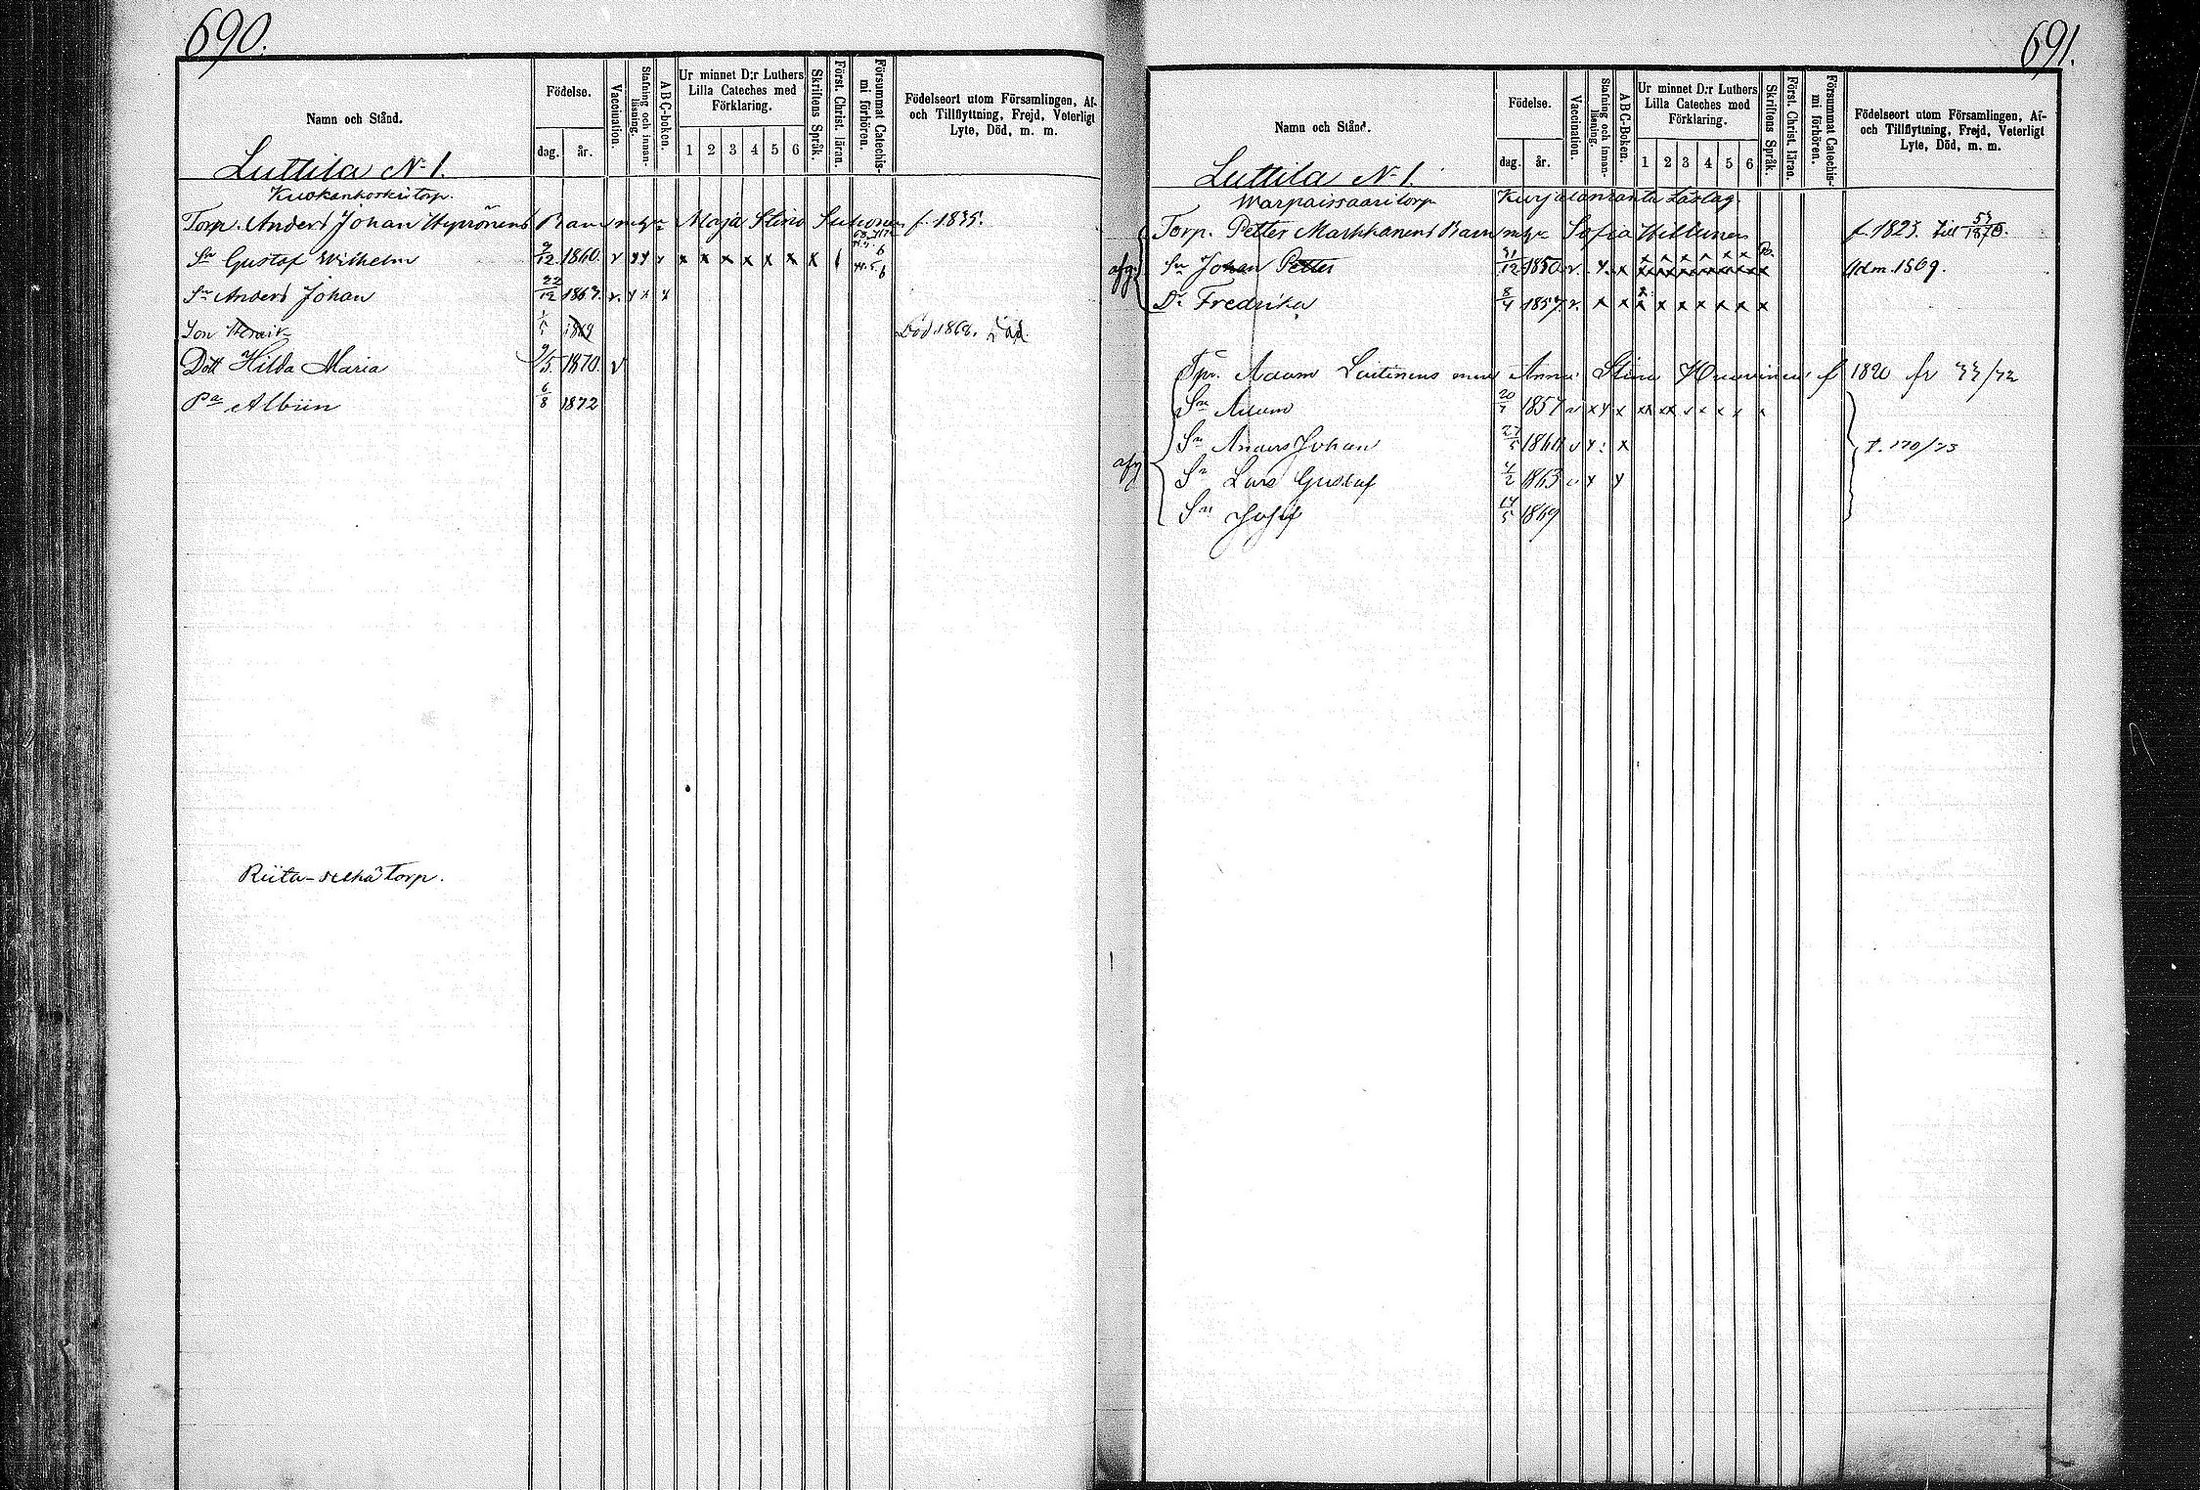 690.
Namn och Stånd.
Födelse.
dag. år.
Vaccination.
Stafning och innanläsning.
ABC-boken.
Ur minnet D:r Luthers Lilla Cateches med Förklaring.
1 2 3 4 5 6
Skriftens Språk.
Först. Christ. läran.
Försummat Catechismi förhören.
Födelseort utom Församlingen, Af- och Tillflyttning, Frejd, Veterligt Lyte, Död, m. m.
Luttila N-1.
Kuokankoski torp.
Torp. Anders Johan Hyprönens Barn m. hu Maja Stina Suhonen f. 1835.
Sn Gustaf Wilhelm 9/12 1860. v x x x x x x x x x x
Sn Anders Johan 22/12 1867. v. x x x
Son Henrik Död 1868. Död.
Dott Hilda Maria 9/5 1870. v
Da Albiin 6/8 1872
Riita-selkä Torp.
691.
Namn och Stånd.
Födelse.
dag. år.
Vaccination.
Stafning och innanläsning.
ABC-Boken.
Ur minnet D:r Luthers Lilla Cateches med Förklaring.
1 2 3 4 5 6
Skriftens Språk.
Först. Christ. läran.
Försummat Catechismi förhören.
Födelseort utom Församlingen, Af- och Tillflyttning, Frejd, Veterligt Lyte, Död, m. m.
Luttila N-1.
Warpaissaari torp Kurjalanranta Läslag.
Torp. Petter Markkanens Barn m. hu Sofia Hiltunen f. 1823. till 53/1870.
afg. Sn Johan Petter 31/12 1850 v. x. x x x x x x x Adm. 1869.
Dr Fredrika 8/4 1857. v. x x x x x x x x x
Tpr. Adam Laitinens med Anna Stina Huuvinen f 1820 fr 33/72
Sn Adam 20/7 1857 v x x x x x x x x x
afg Sn Anders Johan 27/5 1860 v x x
Sn Lars Gustaf 4/2 1863 v x x
Sn Josef 14/5 1869
t. 170/73